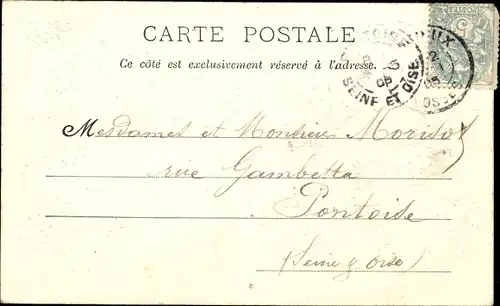 CARTE POSTALE
Ce côté est exclusivement réservé à l'adresse.
SEINE ET OISE
Mesdames et Monsieur Morisot
rue Gambetta
Pontoise
(Seine & Oise)